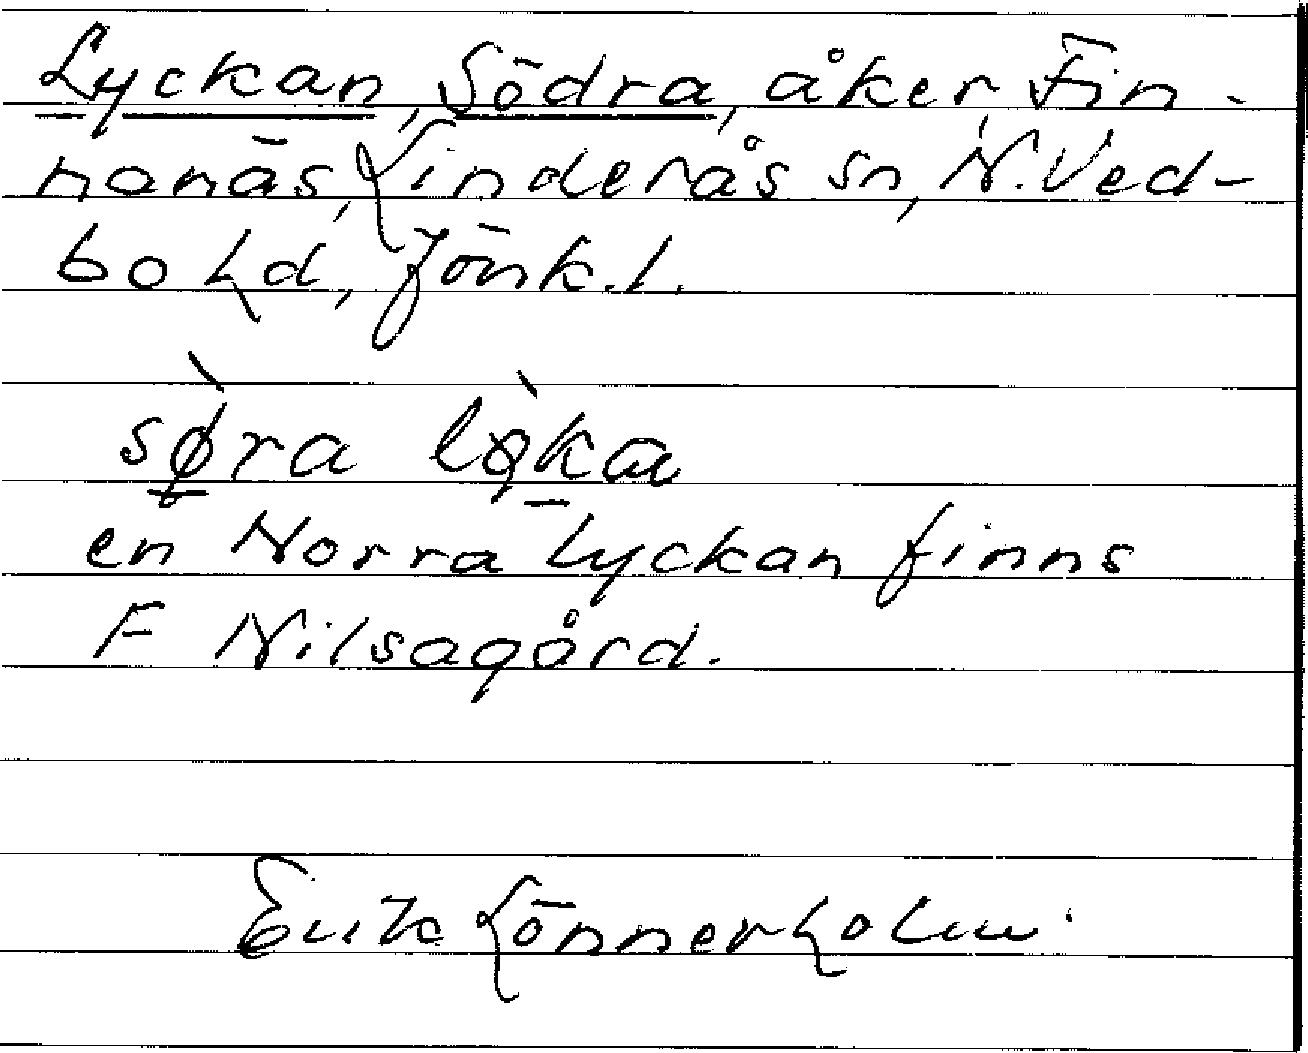 Lyckan, Södra, åker, Fin-
nanäs, Linderås sn, N. Ved-
bo hd, Jönk. l.
sø̀ra lø̀ka
en Norra Lyckan finns
F Nilsagård.
Erik Lönnerholm.